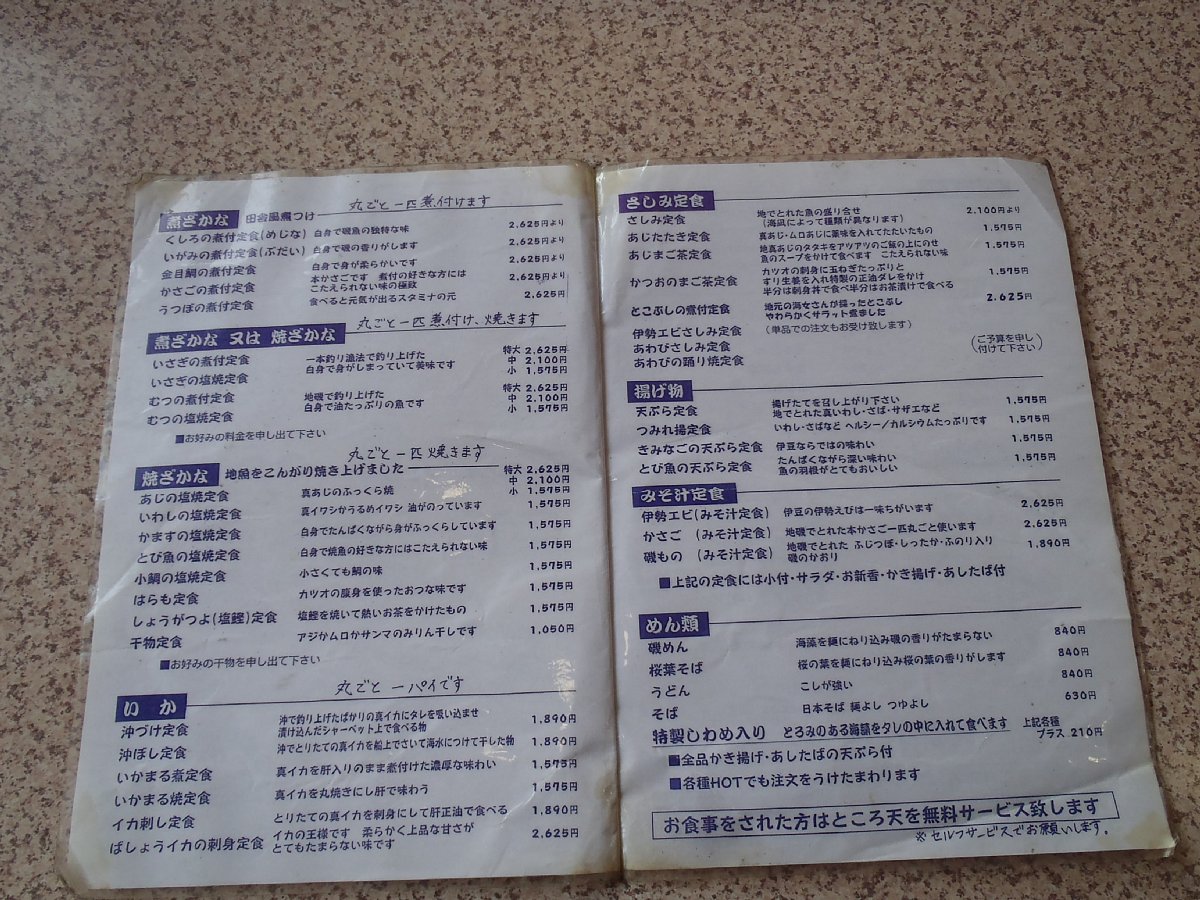 丸ごと一匹煮付けます
煮ざかな 田舎風煮つけ
くしろの煮付定食(めじな) 白身で磯魚の独特な味 2,625円より
いがみの煮付定食(ぶだい) 白身で磯の香りがします 2,625円より
金目鯛の煮付定食 白身で身が柔らかいです 2,625円より
かさごの煮付定食 本かさごです 煮付の好きな方には 2,625円より
こたえられない味の極致
うつぼの煮付定食 食べると元気が出るスタミナの元 2,625円
丸ごと一匹煮付け、焼きます
煮ざかな 又は 焼ざかな
いさぎの煮付定食 一本釣り漁法で釣り上げた 特大 2,625円
いさぎの塩焼定食 白身で身がしまっていて美味です 中 2,100円
小 1,575円
むつの煮付定食 地磯で釣り上げた 特大 2,625円
むつの塩焼定食 白身で油たっぷりの魚です 中 2,100円
小 1,575円
■お好みの料金を申し出て下さい
丸ごと一匹焼きます
焼ざかな 地魚をこんがり焼き上げました 特大 2,625円
中 2,100円
あじの塩焼定食 真あじのふっくら焼 小 1,575円
いわしの塩焼定食 真イワシかうるめイワシ 油がのっています 1,575円
かますの塩焼定食 白身でたんぱくながら身がふっくらしています 1,575円
とび魚の塩焼定食 白身で焼魚の好きな方にはこたえられない味 1,575円
小鯛の塩焼定食 小さくても鯛の味 1,575円
はらも定食 カツオの腹身を使ったおつな味です 1,575円
しょうがつよ(塩鰹)定食 塩鰹を焼いて熱いお茶をかけたもの 1,575円
干物定食 アジかムロかサンマのみりん干しです 1,050円
■お好みの干物を申し出て下さい
丸ごと一パイです
いか
沖づけ定食 沖で釣り上げたばかりの真イカにタレを吸い込ませ 1,890円
漬け込んだシャーベット上で食べる物
沖ぼし定食 沖でとりたての真イカを船上でさいて海水につけて干した物 1,890円
いかまる煮定食 真イカを肝入りのまま煮付けた濃厚な味わい 1,575円
いかまる焼定食 真イカを丸焼きにし肝で味わう 1,575円
イカ刺し定食 とりたての真イカを刺身にして肝正油で食べる 1,890円
ばしょうイカの刺身定食 イカの王様です 柔らかく上品な甘さが 2,625円
とてもたまらない味です
さしみ定食
さしみ定食 地でとれた魚の盛り合せ 2,100円より
(海凪によって種類が異なります)
あじたたき定食 真あじ・ムロあじに薬味を入れてたたいたもの 1,575円
あじまご茶定食 地真あじのタタキをアツアツのご飯の上にのせ 1,575円
魚のスープをかけて食べます こたえられない味
かつおのまご茶定食 カツオの刺身に玉ねぎたっぷりと 1,575円
すり生姜を入れ特製の正油ダレをかけ
半分は刺身丼で食べ半分はお茶漬けで食べる
とこぶしの煮付定食 地元の海女さんが採ったとこぶし 2,625円
やわらかくサラット煮ました
伊勢エビさしみ定食 (単品での注文もお受け致します)
あわびさしみ定食 (ご予算を申し
あわびの踊り焼定食 付けて下さい)
揚げ物
天ぷら定食 揚げたてを召し上がり下さい 1,575円
地でとれた真いわし・さば・サザエなど
つみれ揚定食 いわし・さばなど ヘルシー/カルシウムたっぷりです 1,575円
きみなごの天ぷら定食 伊豆ならではの味わい 1,575円
とび魚の天ぷら定食 たんぱくながら深い味わい 1,575円
魚の羽根がとてもおいしい
みそ汁定食
伊勢エビ(みそ汁定食) 伊豆の伊勢えびは一味ちがいます 2,625円
かさご (みそ汁定食) 地磯でとれた本かさご一匹丸ごと使います 2,625円
磯もの (みそ汁定食) 地磯でとれた ふじつぼ・しったか・ふのり入り 1,890円
磯のかおり
■上記の定食には小付・サラダ・お新香・かき揚げ・あしたば付
めん類
磯めん 海藻を麺にねり込み磯の香りがたまらない 840円
桜葉そば 桜の葉を麺にねり込み桜の葉の香りがします 840円
うどん こしが強い 840円
そば 日本そば 麺よし つゆよし 630円
特製しわめ入り とろみのある海藻をタレの中に入れて食べます 上記各種
プラス 210円
■全品かき揚げ・あしたばの天ぷら付
■各種HOTでも注文をうけたまわります
お食事をされた方はところ天を無料サービス致します
※セルフサービスでお願いします。